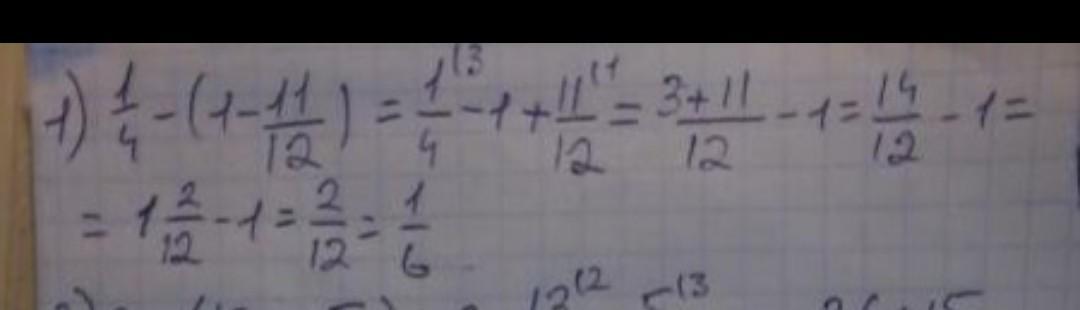 1) 1/4 - (1 - 11/12) = 1/4 (3 - 1 + 11/12 (1 = 3+11/12 - 1 = 14/12 - 1 =
= 1 2/12 - 1 = 2/12 = 1/6
12 (2 5 (3